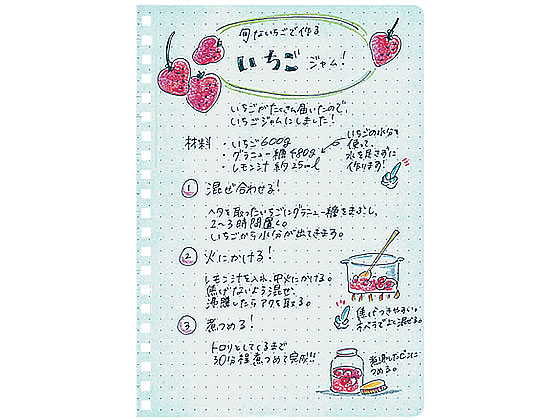 旬ないちごで作る
いちごジャム！
いちごがたくさん届いたので、
いちごジャムにしました！
材料 ・いちご600g
・グラニュー糖480g
・レモン汁 約25ml
いちごの水分を
使って、
水を足さずに
作ります！
① 混ぜ合わせる！
ヘタを取ったいちごにグラニュー糖をまぶし、
2～3時間置く。
いちごから水分が出てきます。
② 火にかける！
レモン汁を入れ、中火にかける。
焦げないよう混ぜ、
沸騰したらアクを取る。
焦げつきやすい。
木べらでよく混ぜる。
③ 煮つめる！
トロリとしてくるまで
30分程煮つめて完成!!
煮沸したビンに
つめる。